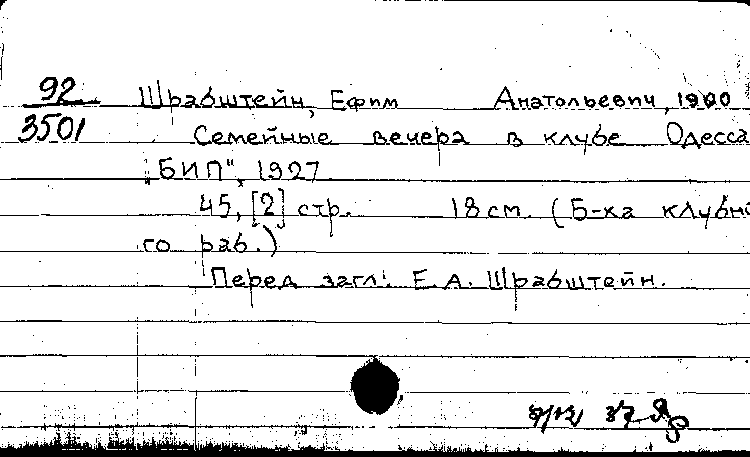 92
3501
Шрабштейн, Ефим Анатольевич, 1900
Семейные вечера в клубе Одесса
"БИП", 1927
45, [2] стр. 18 см. (Б-ка клубно
го раб.)
Перед загл: Е. А. Шрабштейн.